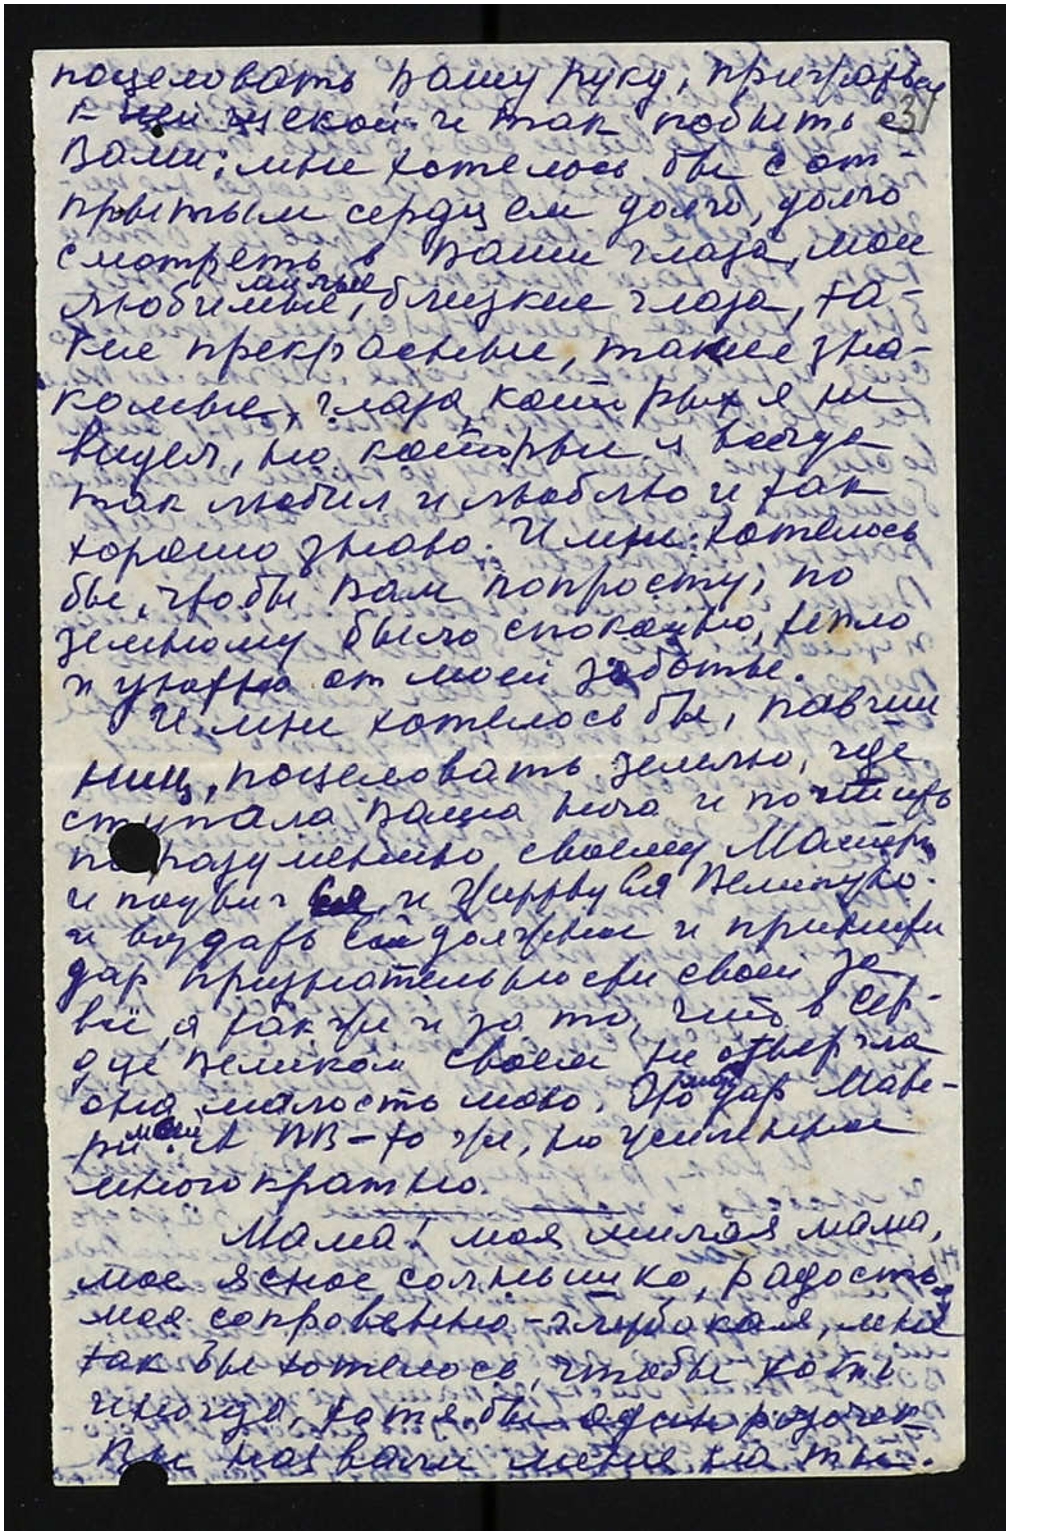 поцеловать Вашу руку, прижаться
31
к ней щекой и так побыть с
Вами; мне хотелось бы с от-
крытым сердцем долго, долго
смотреть в Ваши глаза, мои
милые
любимые, близкие глаза, та-
кие прекрасные, такие зна-
комые, глаза, которых я не
видел, но которые я всегда
так любил и люблю и так
хорошо знаю. И мне хотелось
бы, чтобы Вам попросту, по
земному было спокойно, тепло
и уютно от моей заботы.
И мне хотелось бы, павши
ниц, поцеловать землю, где
ступала Ваша нога и почтить
по разумению своему Матерь
и подвиг Ея и жертву Ея Великую
и воздать Ей должное и принести
дар признательности своей за
всё, а также и за то, что в сер-
дце великом своем не отвергла
она малость мою. Это мой дар Мате-
ри моей. А ПВ – то же, но усиленное
многократно.
Мама! моя милая мама,
мое ясное солнышко, радость
моя сокровенно-глубокая, мне
так бы хотелось, чтобы хоть
иногда, хотя бы один разочек
Вы назвали меня на ты.